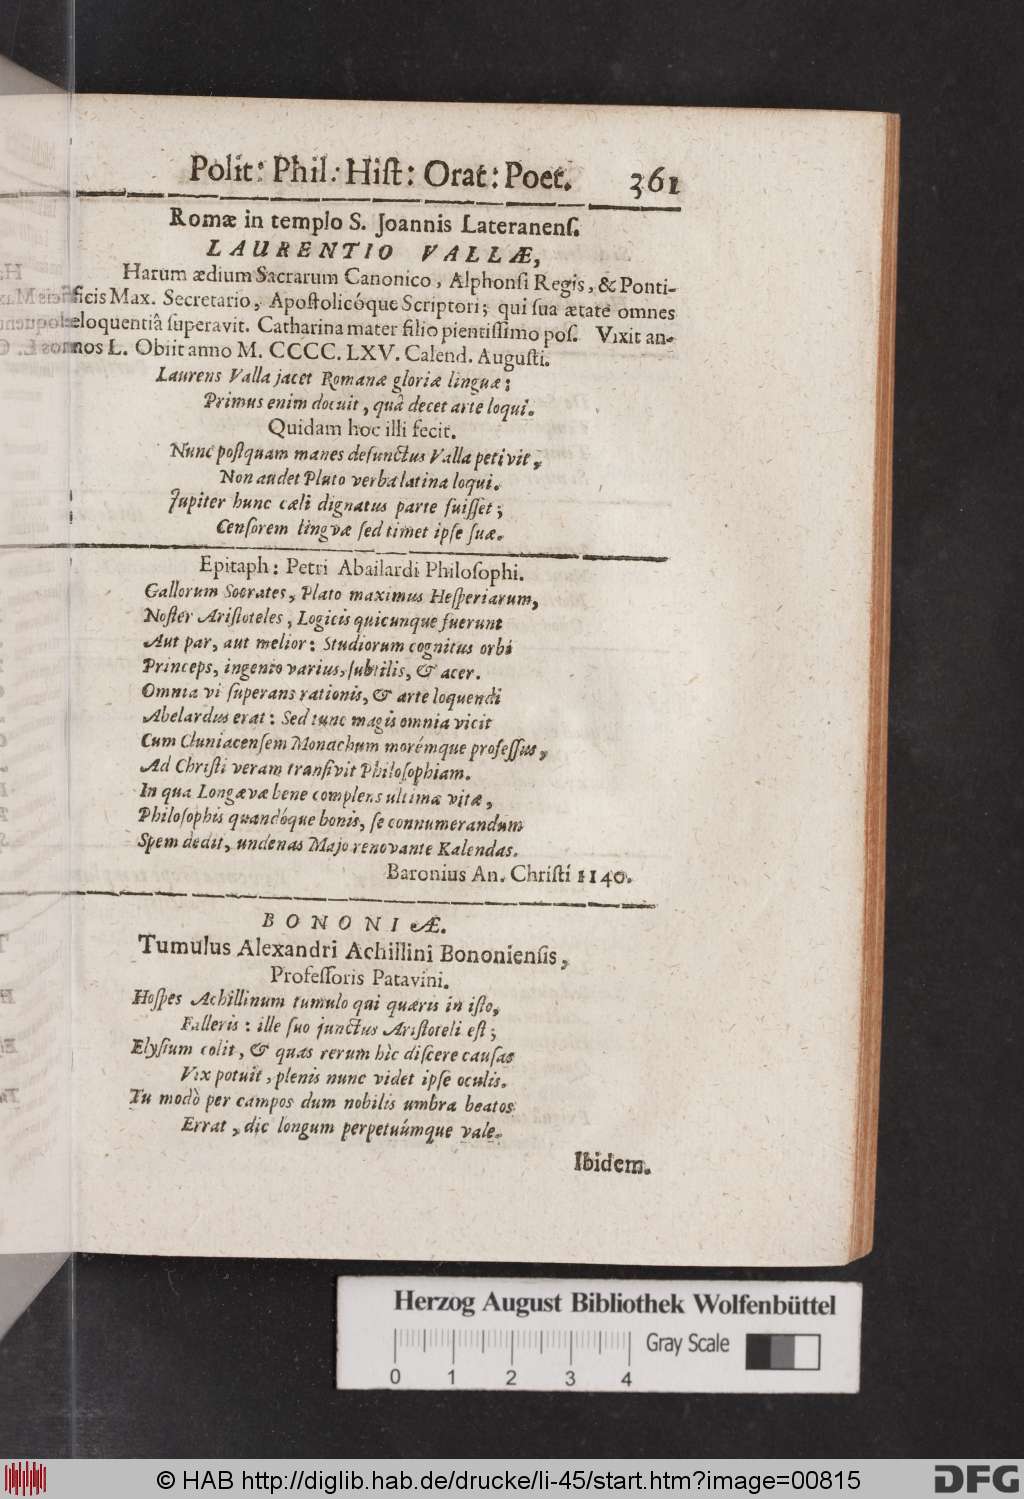 Polit: Phil.: Hiſt: Orat: Poet. 361
Romæ in templo S. Joannis Lateranenſ.
LAURENTIO VALLÆ,
Harum ædium Sacrarum Canonico, Alphonſi Regis, & Ponti-
ficis Max. Secretario, Apoſtolicóque Scriptori; qui ſua ætate omnes
eloquentiâ ſuperavit. Catharina mater filio pientiſſimo poſ. Vixit an-
nos L. Obiit anno M. CCCC. LXV. Calend. Auguſti.
Laurens Valla jacet Romanæ gloria linguæ:
Primus enim docuit, quâ decet arte loqui.
Quidam hoc illi fecit.
Nunc poſtquam manes defunctus Valla petivit,
Non audet Pluto verba latina loqui.
Jupiter hunc cæli dignatus parte fuiſſet;
Cenſorem lingvæ ſed timet ipſe ſuæ.
Epitaph: Petri Abailardi Philoſophi.
Gallorum Socrates, Plato maximus Heſperiarum,
Noſter Ariſtoteles, Logicis quicunque fuerunt
Aut par, aut melior: Studiorum cognitus orbi
Princeps, ingenio varius, ſubtilis, & acer.
Omnia vi ſuperans rationis, & arte loquendi
Abelardus erat: Sed tunc magis omnia vicit
Cum Cluniacenſem Monachum morémque profeſſus,
Ad Chriſti veram tranſivit Philoſophiam.
In qua Longævæ bene complens ultima vitæ,
Philoſophis quandóque bonis, ſe connumerandum
Spem dedit, undenas Majo renovante Kalendas.
Baronius An. Chriſti 1140.
BONONIÆ.
Tumulus Alexandri Achillini Bononienſis,
Profeſſoris Patavini.
Hoſpes Achillinum tumulo qui quæris in iſto,
Falleris: ille ſuo junctus Ariſtoteli eſt;
Elyſium colit, & quas rerum hìc diſcere cauſas
Vix potuit, plenis nunc videt ipſe oculis.
Tu modò per campos dum nobilis umbra beatos
Errat, dic longum perpetuúmque vale.
Ibidem.
Herzog August Bibliothek Wolfenbüttel
Gray Scale
0 1 2 3 4
© HAB http://diglib.hab.de/drucke/li-45/start.htm?image=00815
DFG